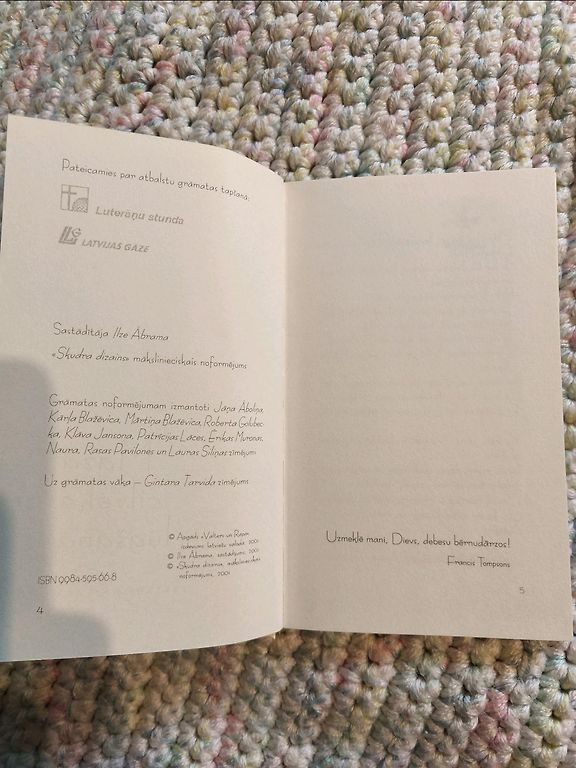 Pateicamies par atbalstu grāmatas tapšanā:
Luterāņu stunda
LG LATVIJAS GĀZE
Sastādītāja Ilze Ābrama
«Skudra dizains» mākslinieciskais noformējums
Grāmatas noformējumam izmantoti Jāņa Āboliņa,
Kārļa Blaževica, Mārtiņa Blaževica, Roberta Golubec-
ka, Klāva Jansona, Patrīcijas Lāces, Ērikas Muronas,
Naura, Rasas Pavilones un Lauras Siliņas zīmējumi
Uz grāmatas vāka – Gintara Tarvida zīmējums
© Apgāds «Valters un Rapa»,
izdevums latviešu valodā, 2001
© Ilze Ābrama, sastādījums, 2001
© «Skudra dizains», mākslinieciskais
noformējums, 2001
ISBN 9984-595-66-8
4
Uzmeklē mani, Dievs, debesu bērnudārzos!
Francis Tompsons
5